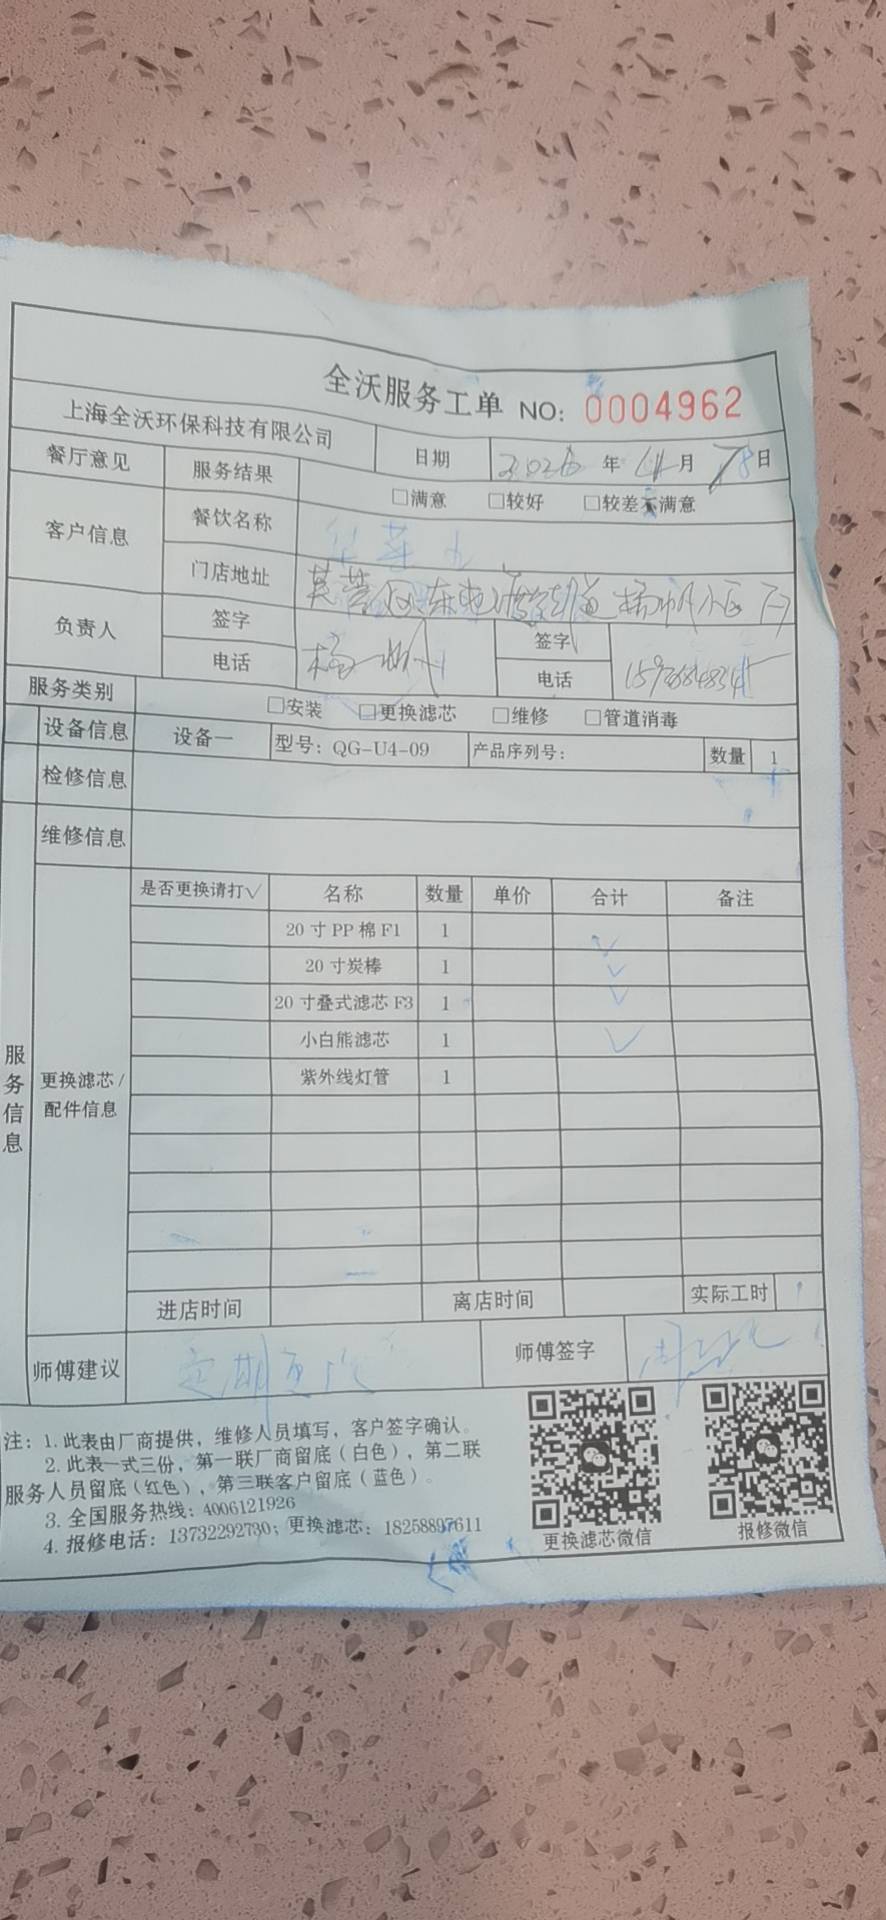 全沃服务工单 NO: 0004962
上海全沃环保科技有限公司 日期 2026 年 月 日
餐厅意见 服务结果 □满意 □较好 □较差不满意
客户信息 餐饮名称 华莱士
门店地址
负责人 签字 签字
电话 电话
服务类别 □安装 □更换滤芯 □维修 □管道消毒
设备信息 设备一 型号: QG-U4-09 产品序列号: 数量 1
检修信息
维修信息
服务信息
更换滤芯/
配件信息
是否更换请打√ 名称 数量 单价 合计 备注
20寸PP棉F1 1 ✓
20寸炭棒 1 ✓
20寸叠式滤芯F3 1 ✓
小白熊滤芯 1 ✓
紫外线灯管 1
进店时间 离店时间 实际工时
师傅建议 定期更换 师傅签字
注: 1. 此表由厂商提供，维修人员填写，客户签字确认。
2. 此表一式三份，第一联厂商留底(白色)，第二联
服务人员留底(红色)，第三联客户留底(蓝色)。
3. 全国服务热线: 4006121926
4. 报修电话: 13732292730; 更换滤芯: 18258897611
更换滤芯微信 报修微信